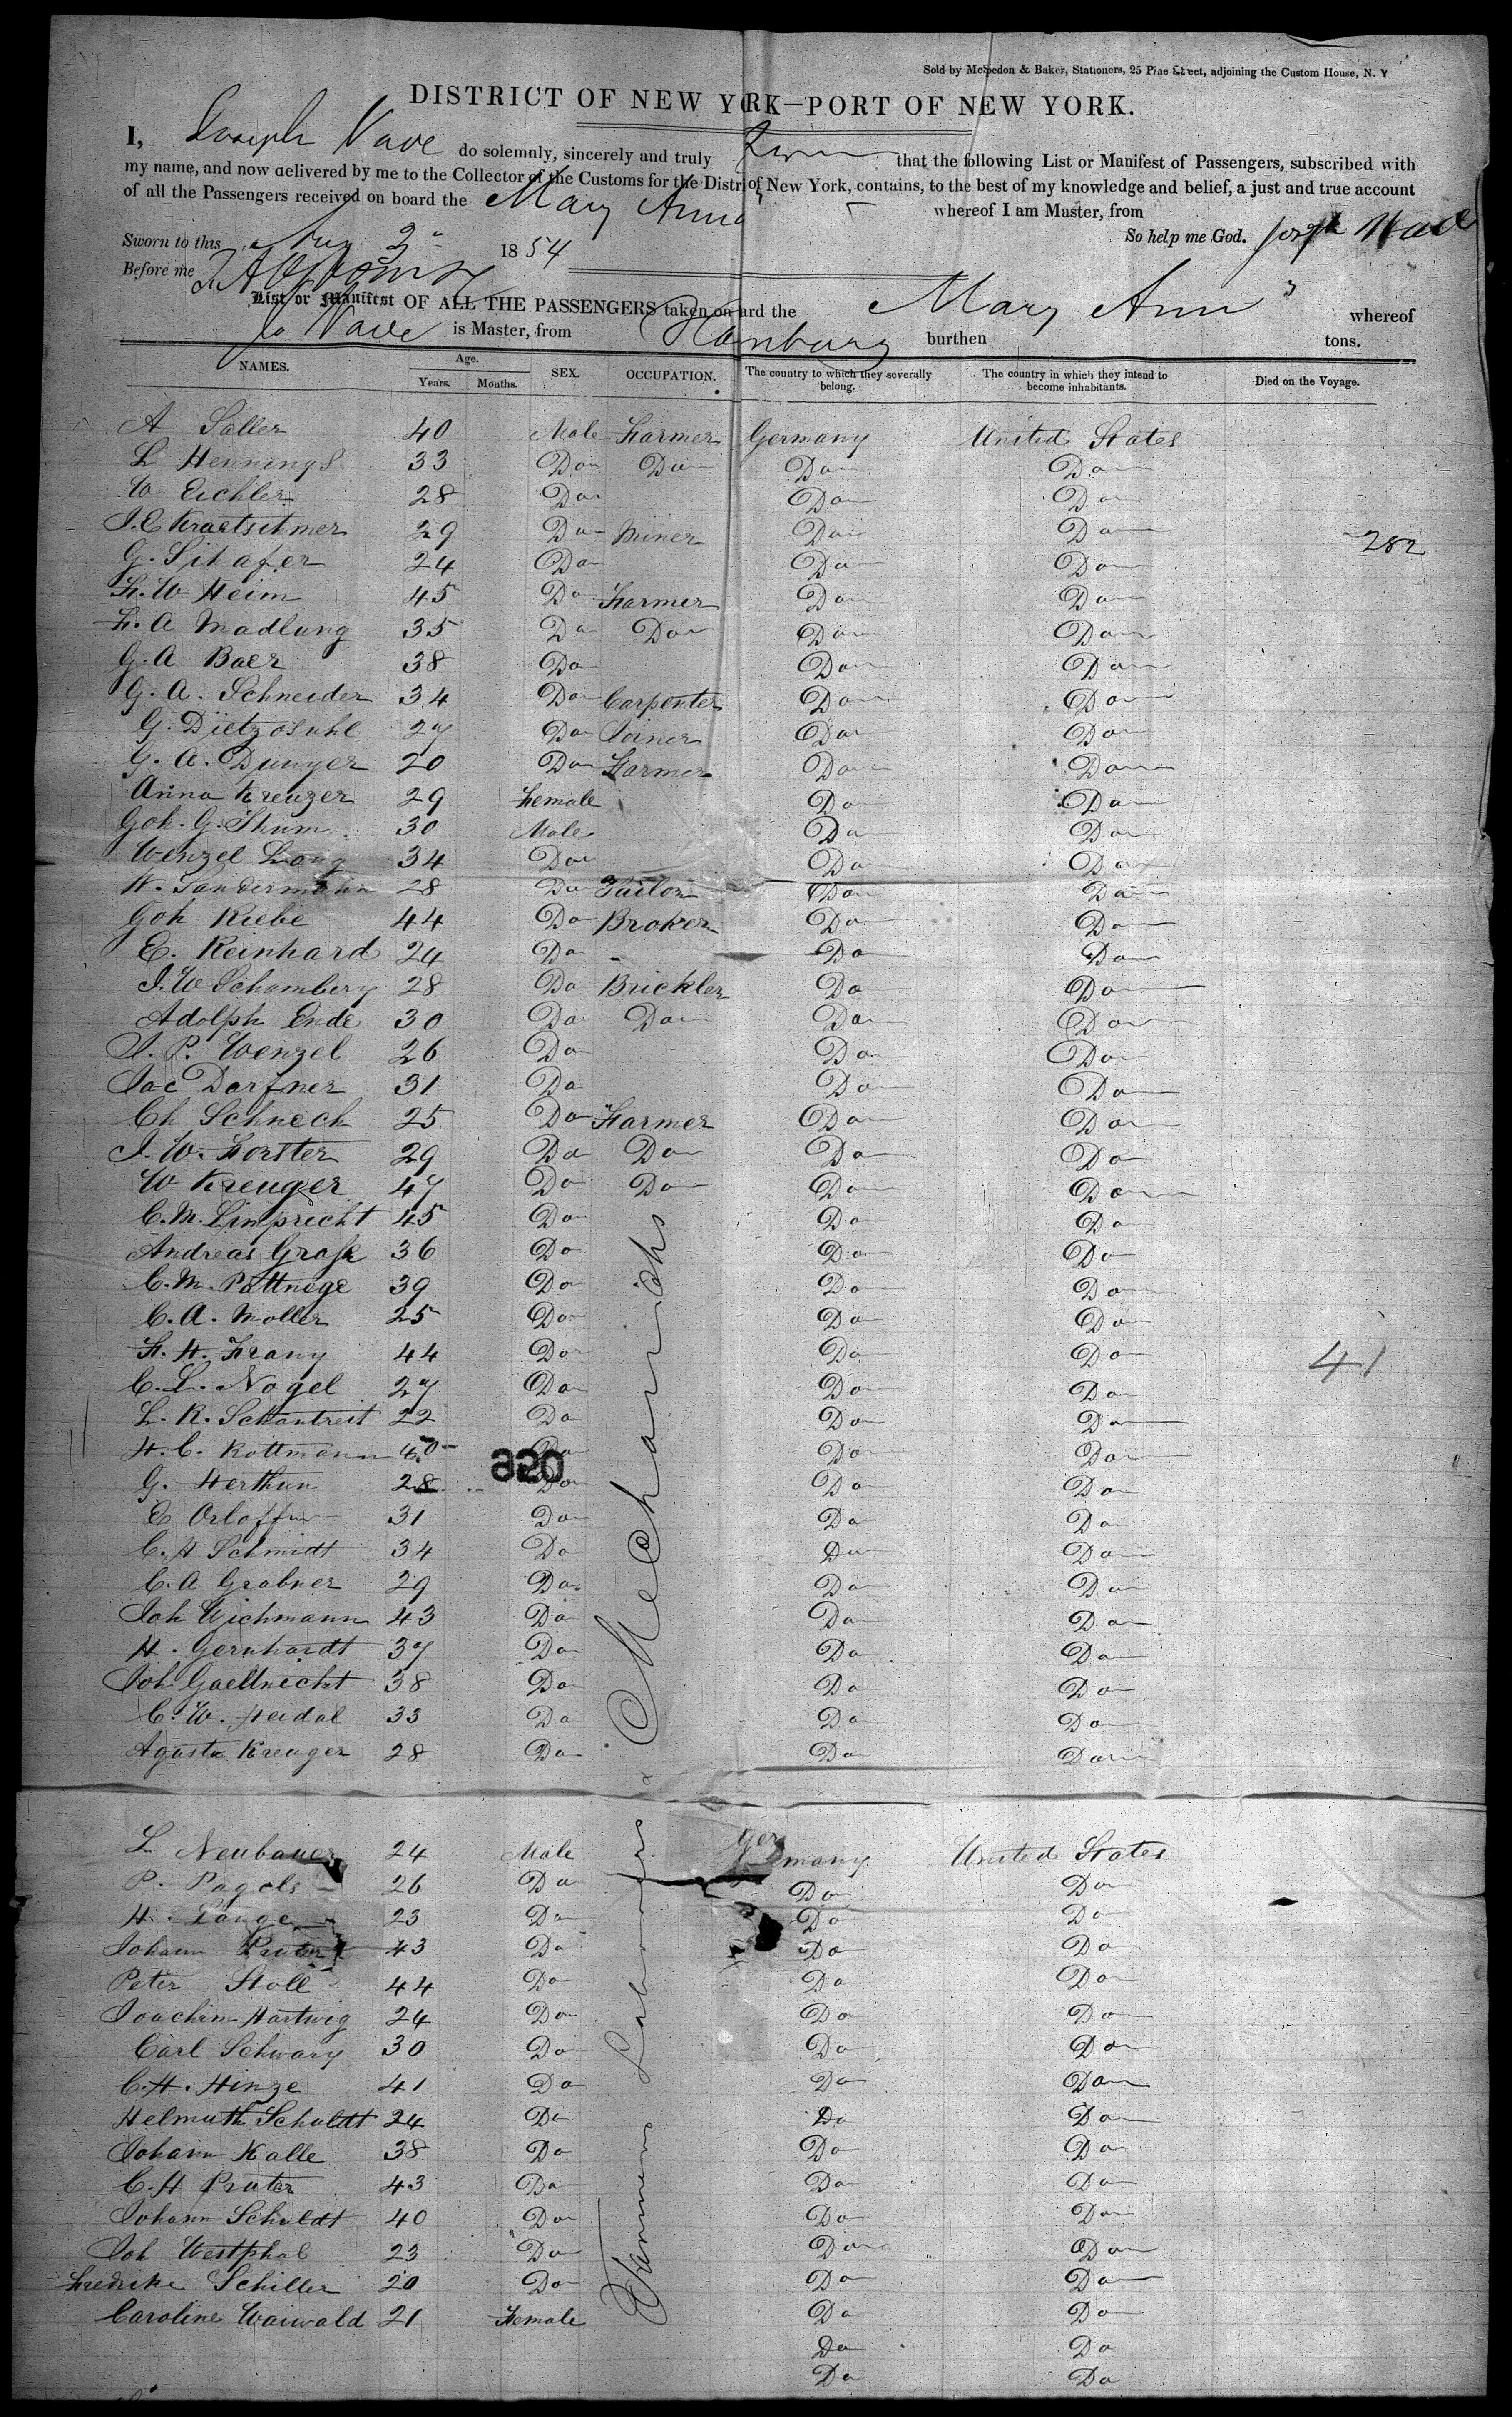 Sold by McSpedon & Baker, Stationers, 25 Pine Street, adjoining the Custom House, N. Y
DISTRICT OF NEW YORK—PORT OF NEW YORK.
I, Joseph Nave do solemnly, sincerely and truly that the following List or Manifest of Passengers, subscribed with
my name, and now delivered by me to the Collector of the Customs for the District of New York, contains, to the best of my knowledge and belief, a just and true account
of all the Passengers received on board the Mary Ann whereof I am Master, from
Sworn to this Aug 3 1854 So help me God.
Before me
List or Manifest OF ALL THE PASSENGERS taken on board the Mary Ann whereof
Jo Nave is Master, from Hamburg burthen tons.
NAMES. Age. Years. Months. SEX. OCCUPATION. The country to which they severally belong. The country in which they intend to become inhabitants. Died on the Voyage.
A Saller 40 Male Farmer Germany United States
L Hennings 33 Do Do Do Do
W Eichler 28 Do Do Do
J. E Kraetschmer 29 Do Miner Do Do 282
G. Schafer 24 Do Do Do
F. W Heim 45 Do Farmer Do Do
F. A Madlung 35 Do Do Do Do
G. A Baer 38 Do Do Do
G. A. Schneider 34 Do Carpenter Do Do
G. 27 Do Joiner Do Do
G. A. 20 Do Farmer Do Do
Anna Kreuzer 29 Female Do Do
Goh. G. Thum 30 Male Do Do
Wenzel Long 34 Do Do Do
W. Sandermann 28 Do Tailor Do Do
Goh Riebe 44 Do Broker Do Do
E. Reinhard 24 Do Do Do
J. W Schamberg 28 Do Brickler Do Do
Adolph Ende 30 Do Do Do Do
J. P. Wenzel 26 Do Do Do
Jac Dorfner 31 Do Do Do
Ch Schneck 25 Do Farmer Do Do
J. W. Forster 29 Do Do Do Do
W Kreuger 47 Do Do Do Do
C. M. Limprecht 45 Do Do Do
Andreas Grosse 36 Do Do Do
C. M. Pottnege 39 Do Do Do
C. A. Moller 25 Do Do Do
F. H. Frany 44 Do Do Do 41
C. L. Nagel 27 Do Do Do
L. R. Schantreit 22 Do Do Do
H. C. Rottmann 40 Do Do Do
950
G. Herthun 28 Do Do Do
E Orloff 31 Do Do Do
C. H Schmidt 34 Do Do Do
C. A Grabner 29 Do Do Do
Joh Wichmann 43 Do Do Do
H. Gernhardt 37 Do Do Do
Joh Gaellnecht 38 Do Do Do
C. W. Heidal 33 Do Do Do
Agusta Kreuger 28 Do Do Do
L Neubauer 24 Male Germany United States
P. Pagels 26 Do Do Do
H. Lange 23 Do Do Do
Johann Pruter 43 Do Do Do
Peter Stoll 44 Do Do Do
Joachim Hartwig 24 Do Do Do
Carl Schwarz 30 Do Do Do
C. H. Hinze 41 Do Do Do
Helmuth Schuldt 24 Do Do Do
Johann Kalle 38 Do Do Do
C. H Pruter 43 Do Do Do
Johann Schuldt 40 Do Do Do
Joh Westphal 23 Do Do Do
Fredrike Schiller 20 Do Do Do
Caroline Waiwald 21 Female Do Do
Do Do
Do Do
Farmers Labourers & Mechanichs